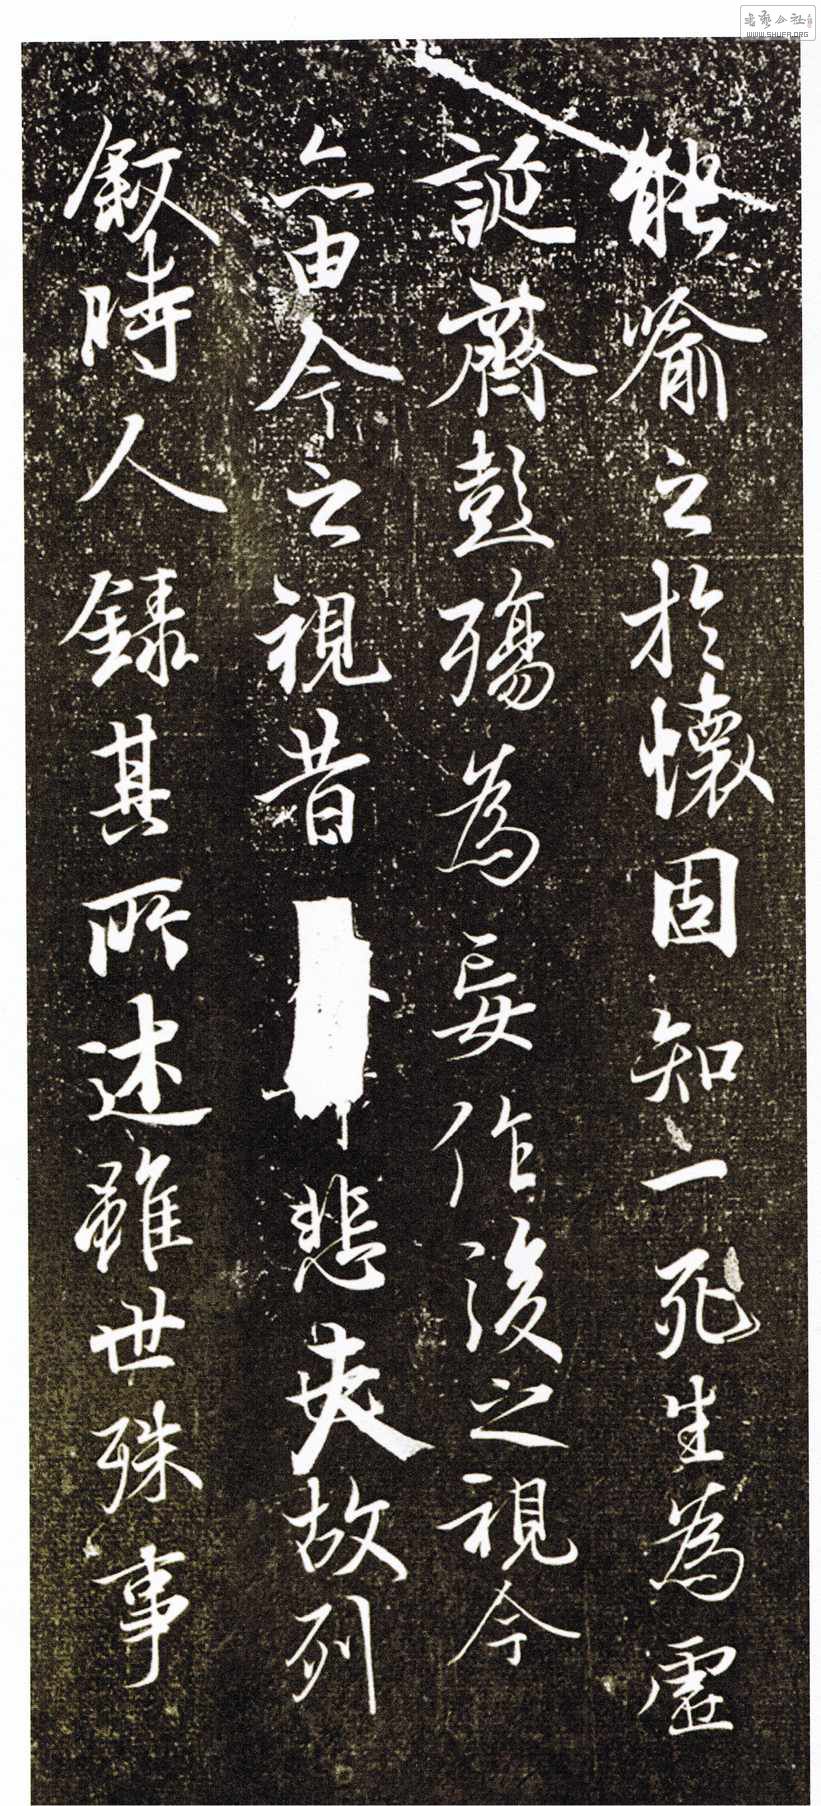 能喻之於懷固知一死生為虛
誕齊彭殤為妄作後之視今
亦由今之視昔悲夫故列
敘時人錄其所述雖世殊事
WWW.SHUFA.ORG